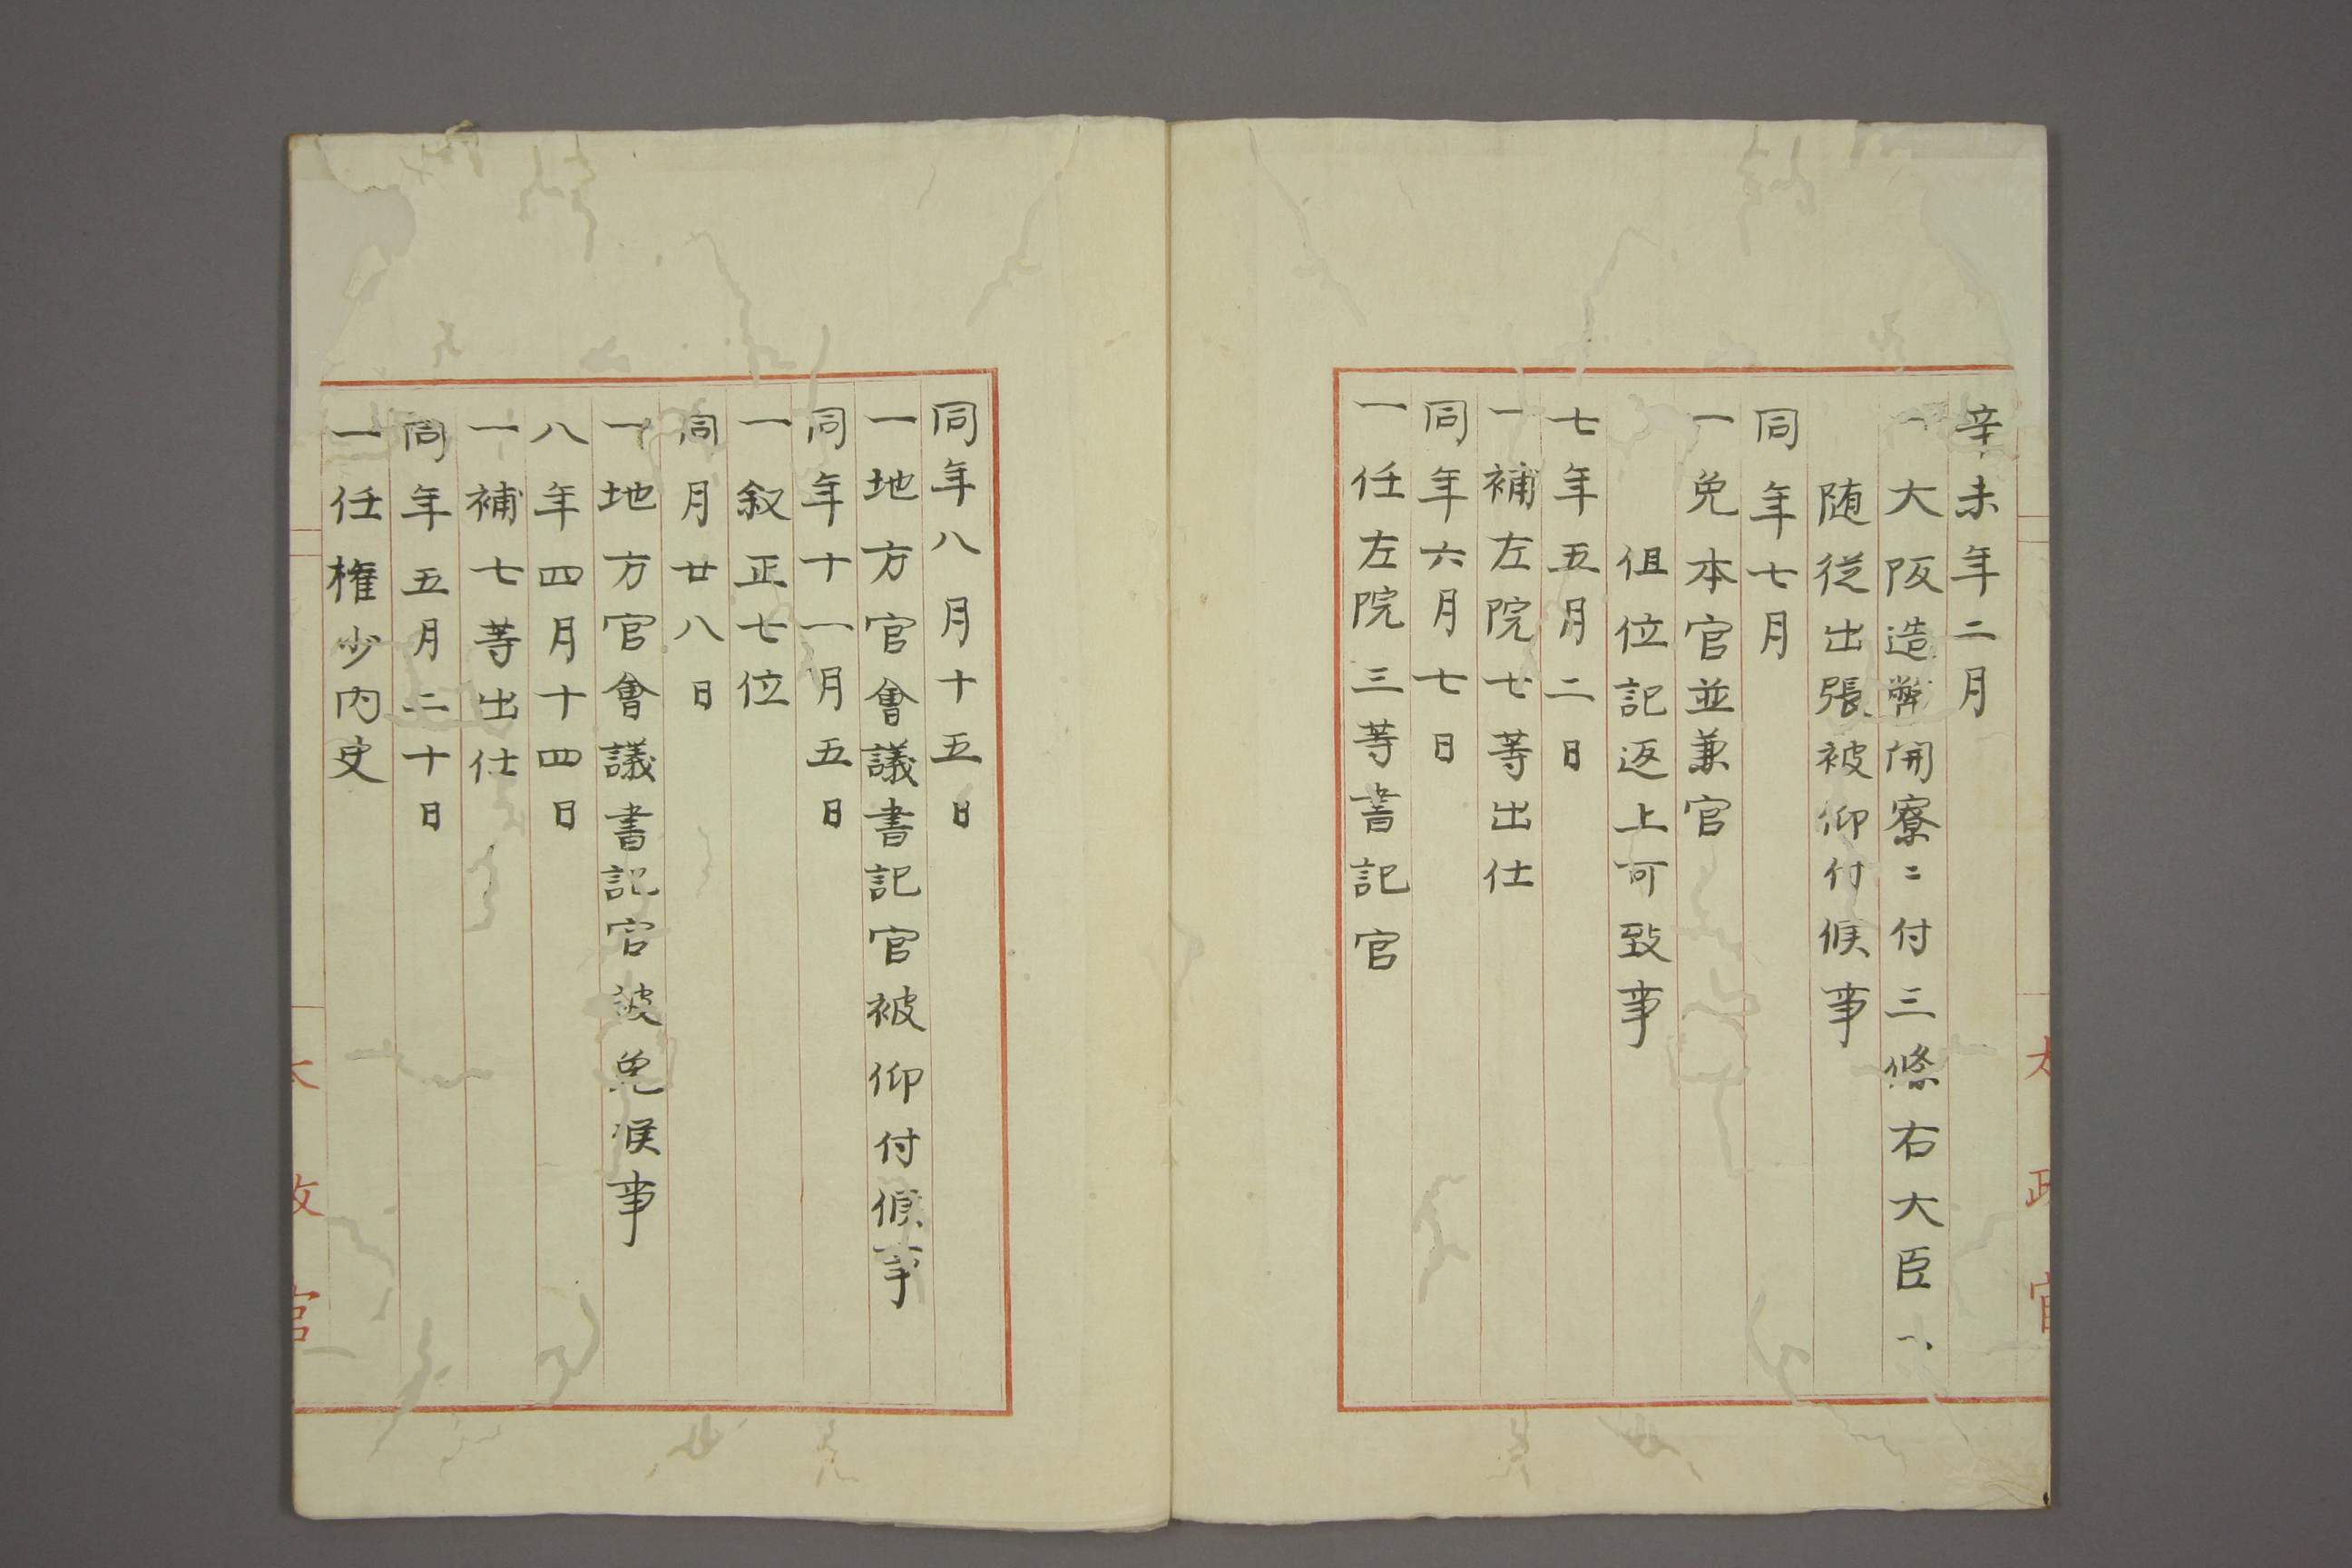 辛未年二月
一大阪造幣開寮ニ付三條右大臣ヘ
随従出張被仰付候事
同年七月
一免本官並兼官
但位記返上可致事
七年五月二日
一補左院七等出仕
同年六月七日
一任左院三等書記官
同年八月十五日
一地方官會議書記官被仰付候事
同年十一月五日
一叙正七位
同月廿八日
一地方官會議書記官被免候事
八年四月十四日
一補七等出仕
同年五月二十日
一任権少内史
太政官
太政官